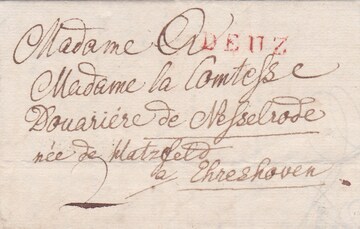 Madame
DEUZ
Madame la Comtesse
Douariére de Nesselrode
née de Hatzfeld
a Ehreshoven